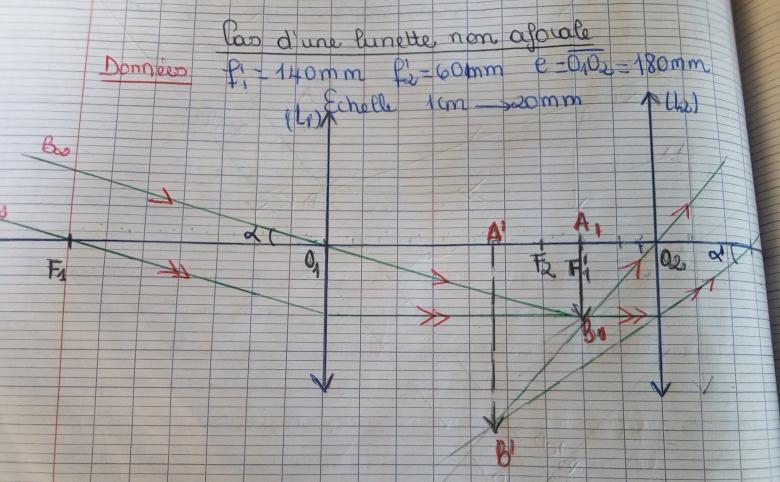 Cas d'une lunette non afocale
Données f'₁ = 140mm f'₂ = 60mm e = O₁O₂ = 180mm
Echelle 1cm → 20mm
(L₁) (L₂)
B∞
α A' A₁
F₁ O₁ F₂ F'₁ O₂ α'
B₁
B'